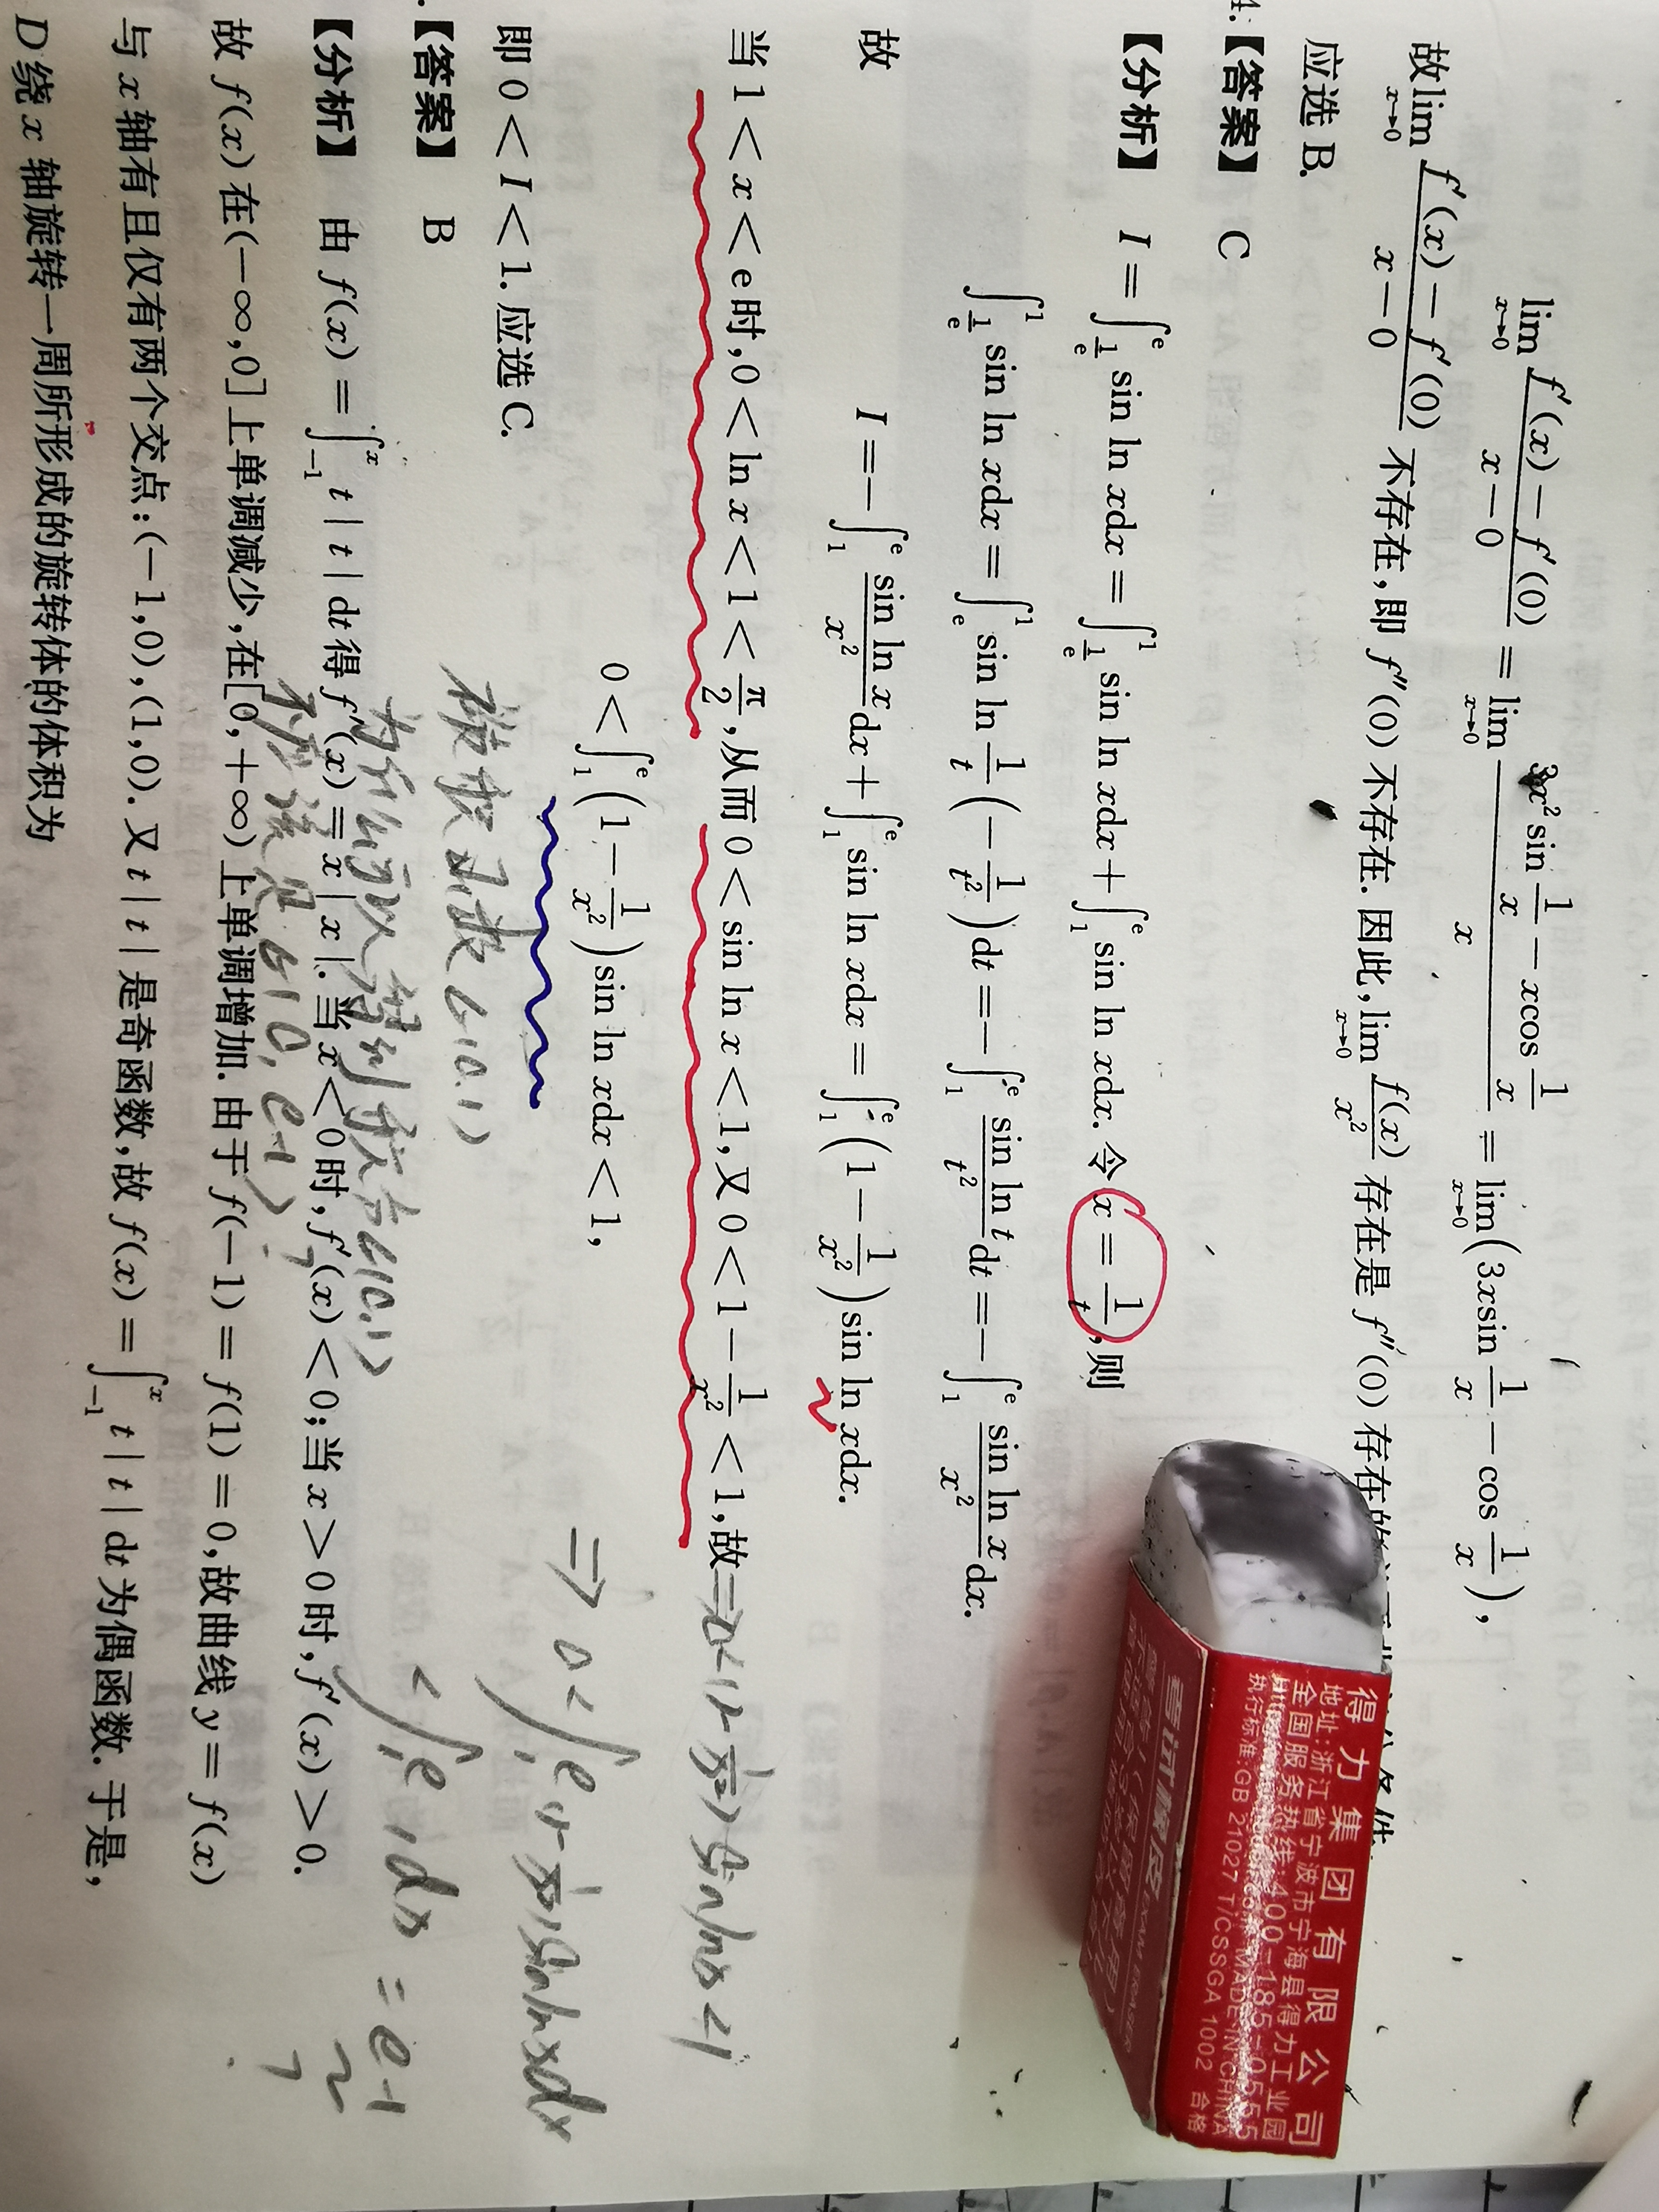 lim x→0 f′(x)－f′(0) / x－0 = lim x→0 3x² sin 1/x － xcos 1/x / x = lim x→0 (3xsin 1/x － cos 1/x),
故 lim x→0 f′(x)－f′(0) / x－0 不存在,即 f″(0) 不存在. 因此, lim x→0 f(x)/x² 存在是 f″(0) 存在的
应选 B.
4.【答案】 C
【分析】 I = ∫_{1/e}^{e} sin ln xdx = ∫_{1/e}^{1} sin ln xdx + ∫_1^e sin ln xdx. 令 x = 1/t, 则
∫_{1/e}^{1} sin ln xdx = ∫_e^1 sin ln 1/t (－1/t²)dt = －∫_1^e sin ln t / t² dt = －∫_1^e sin ln x / x² dx.
故 I = －∫_1^e sin ln x / x² dx + ∫_1^e sin ln xdx = ∫_1^e (1－1/x²) sin ln xdx.
当 1 < x < e 时, 0 < ln x < 1 < π/2, 从而 0 < sin ln x < 1, 又 0 < 1－1/x² < 1, 故 => 0<(1-1/x²) sin lnx <1
0 < ∫_1^e (1－1/x²) sin ln xdx < 1,
=> 0<∫_1^e (1-1/x²) sin lnx dx
< ∫_1^e 1 dx = e-1
?
即 0 < I < 1. 应选 C.
被积函数 ∈(0,1)
为何可以得到 积分∈(0,1)
不应该是 ∈(0, e-1) ?
.【答案】 B
【分析】 由 f(x) = ∫_{－1}^{x} t | t | dt 得 f′(x) = x | x |. 当 x < 0 时, f′(x) < 0; 当 x > 0 时, f′(x) > 0.
故 f(x) 在(－∞,0] 上单调减少, 在[0, + ∞) 上单调增加. 由于 f(－1) = f(1) = 0, 故曲线 y = f(x)
与 x 轴有且仅有两个交点:(－1,0),(1,0). 又 t | t | 是奇函数, 故 f(x) = ∫_{－1}^{x} t | t | dt 为偶函数. 于是,
D 绕 x 轴旋转一周所形成的旋转体的体积为
得力集团有限公司
地址:浙江省宁波市宁海县得力工业园
全国服务热线:400-185-0555
MADE IN CHINA
执行标准:GB 21027 T/CSSGA 1002 合格
考试橡皮 EXAM ERASER